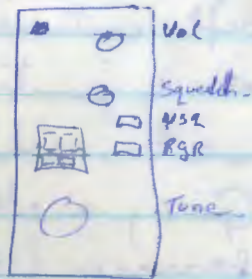 Vol
Squelch.
RGR
Tune